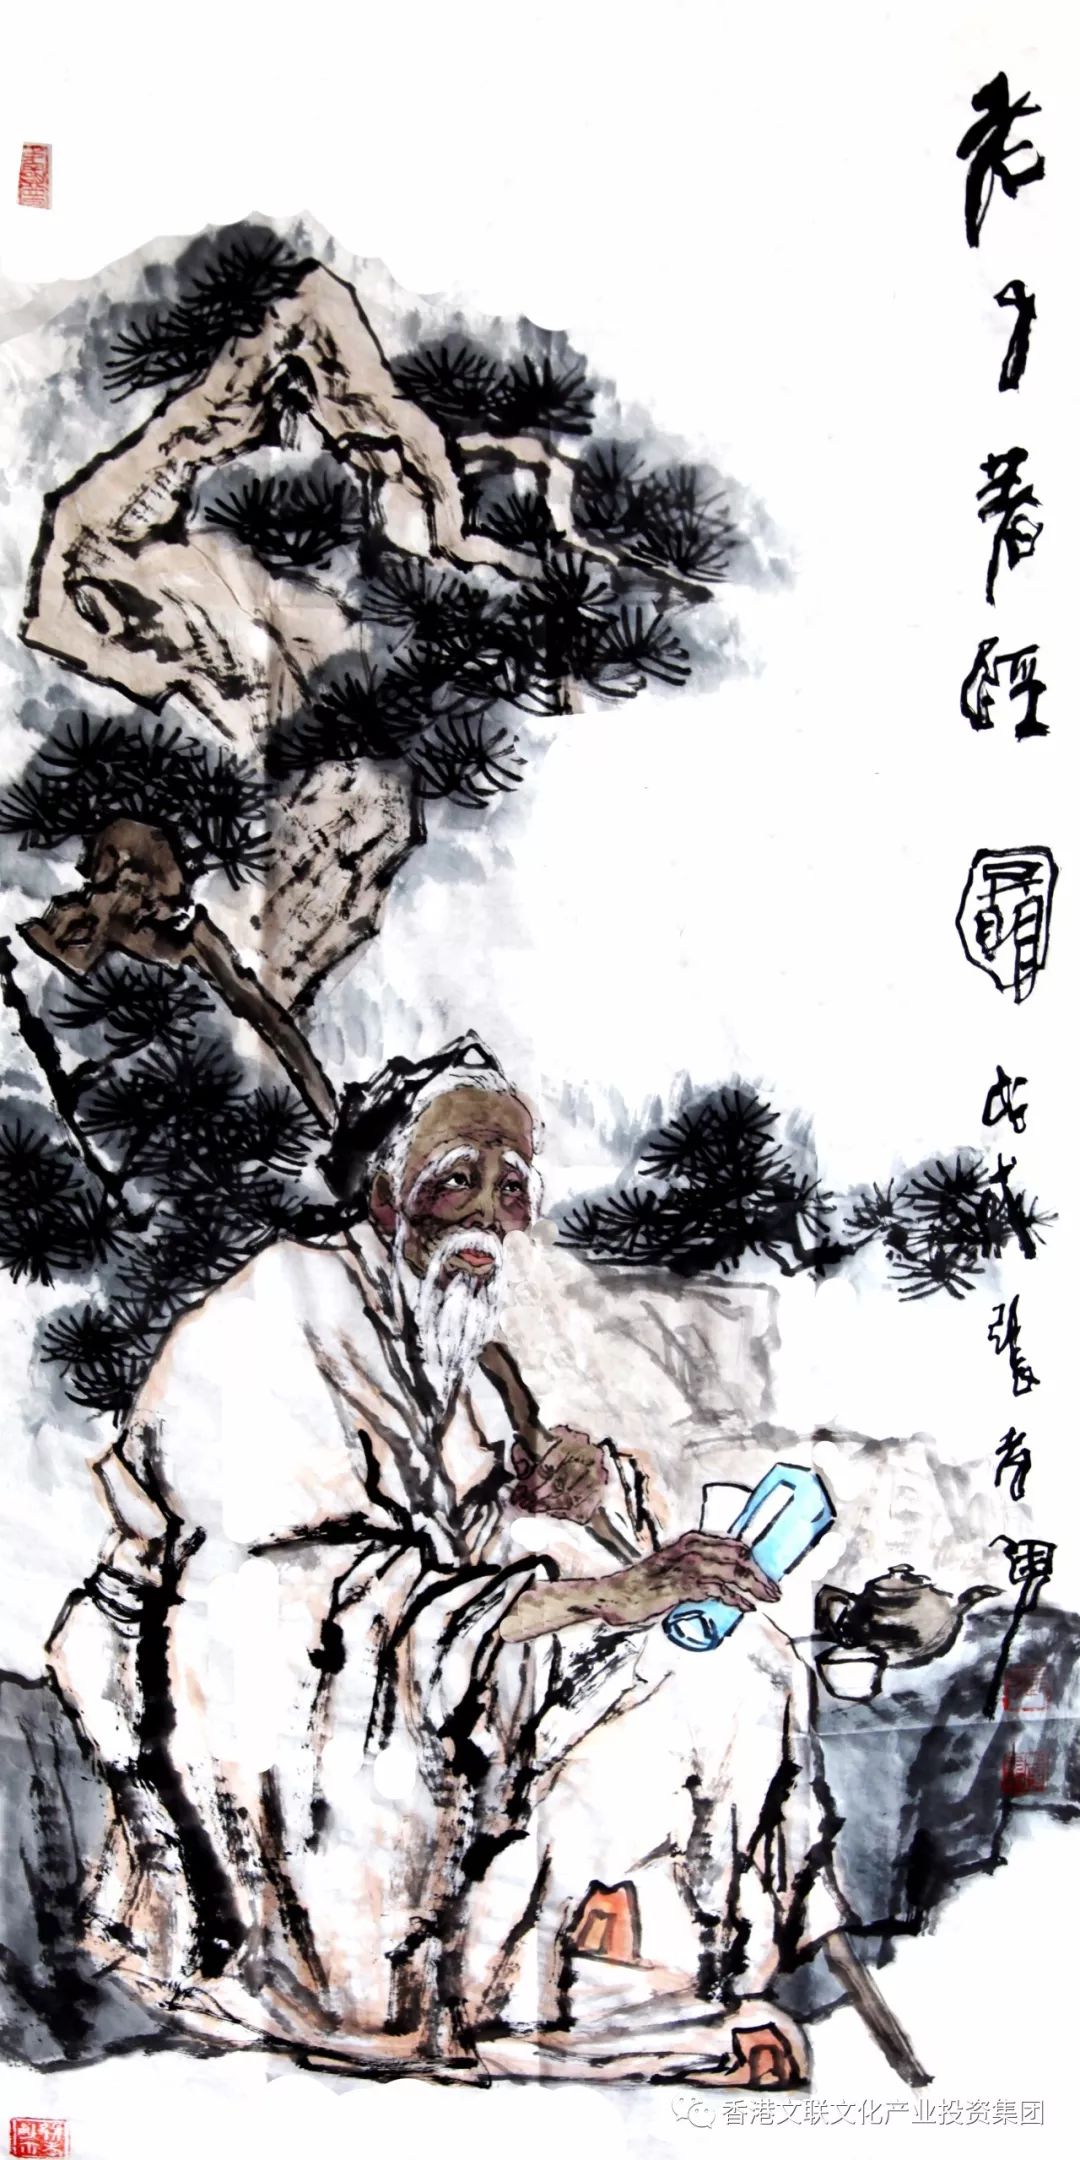 老子著經圖 戊戌 張
香港文联文化产业投资集团